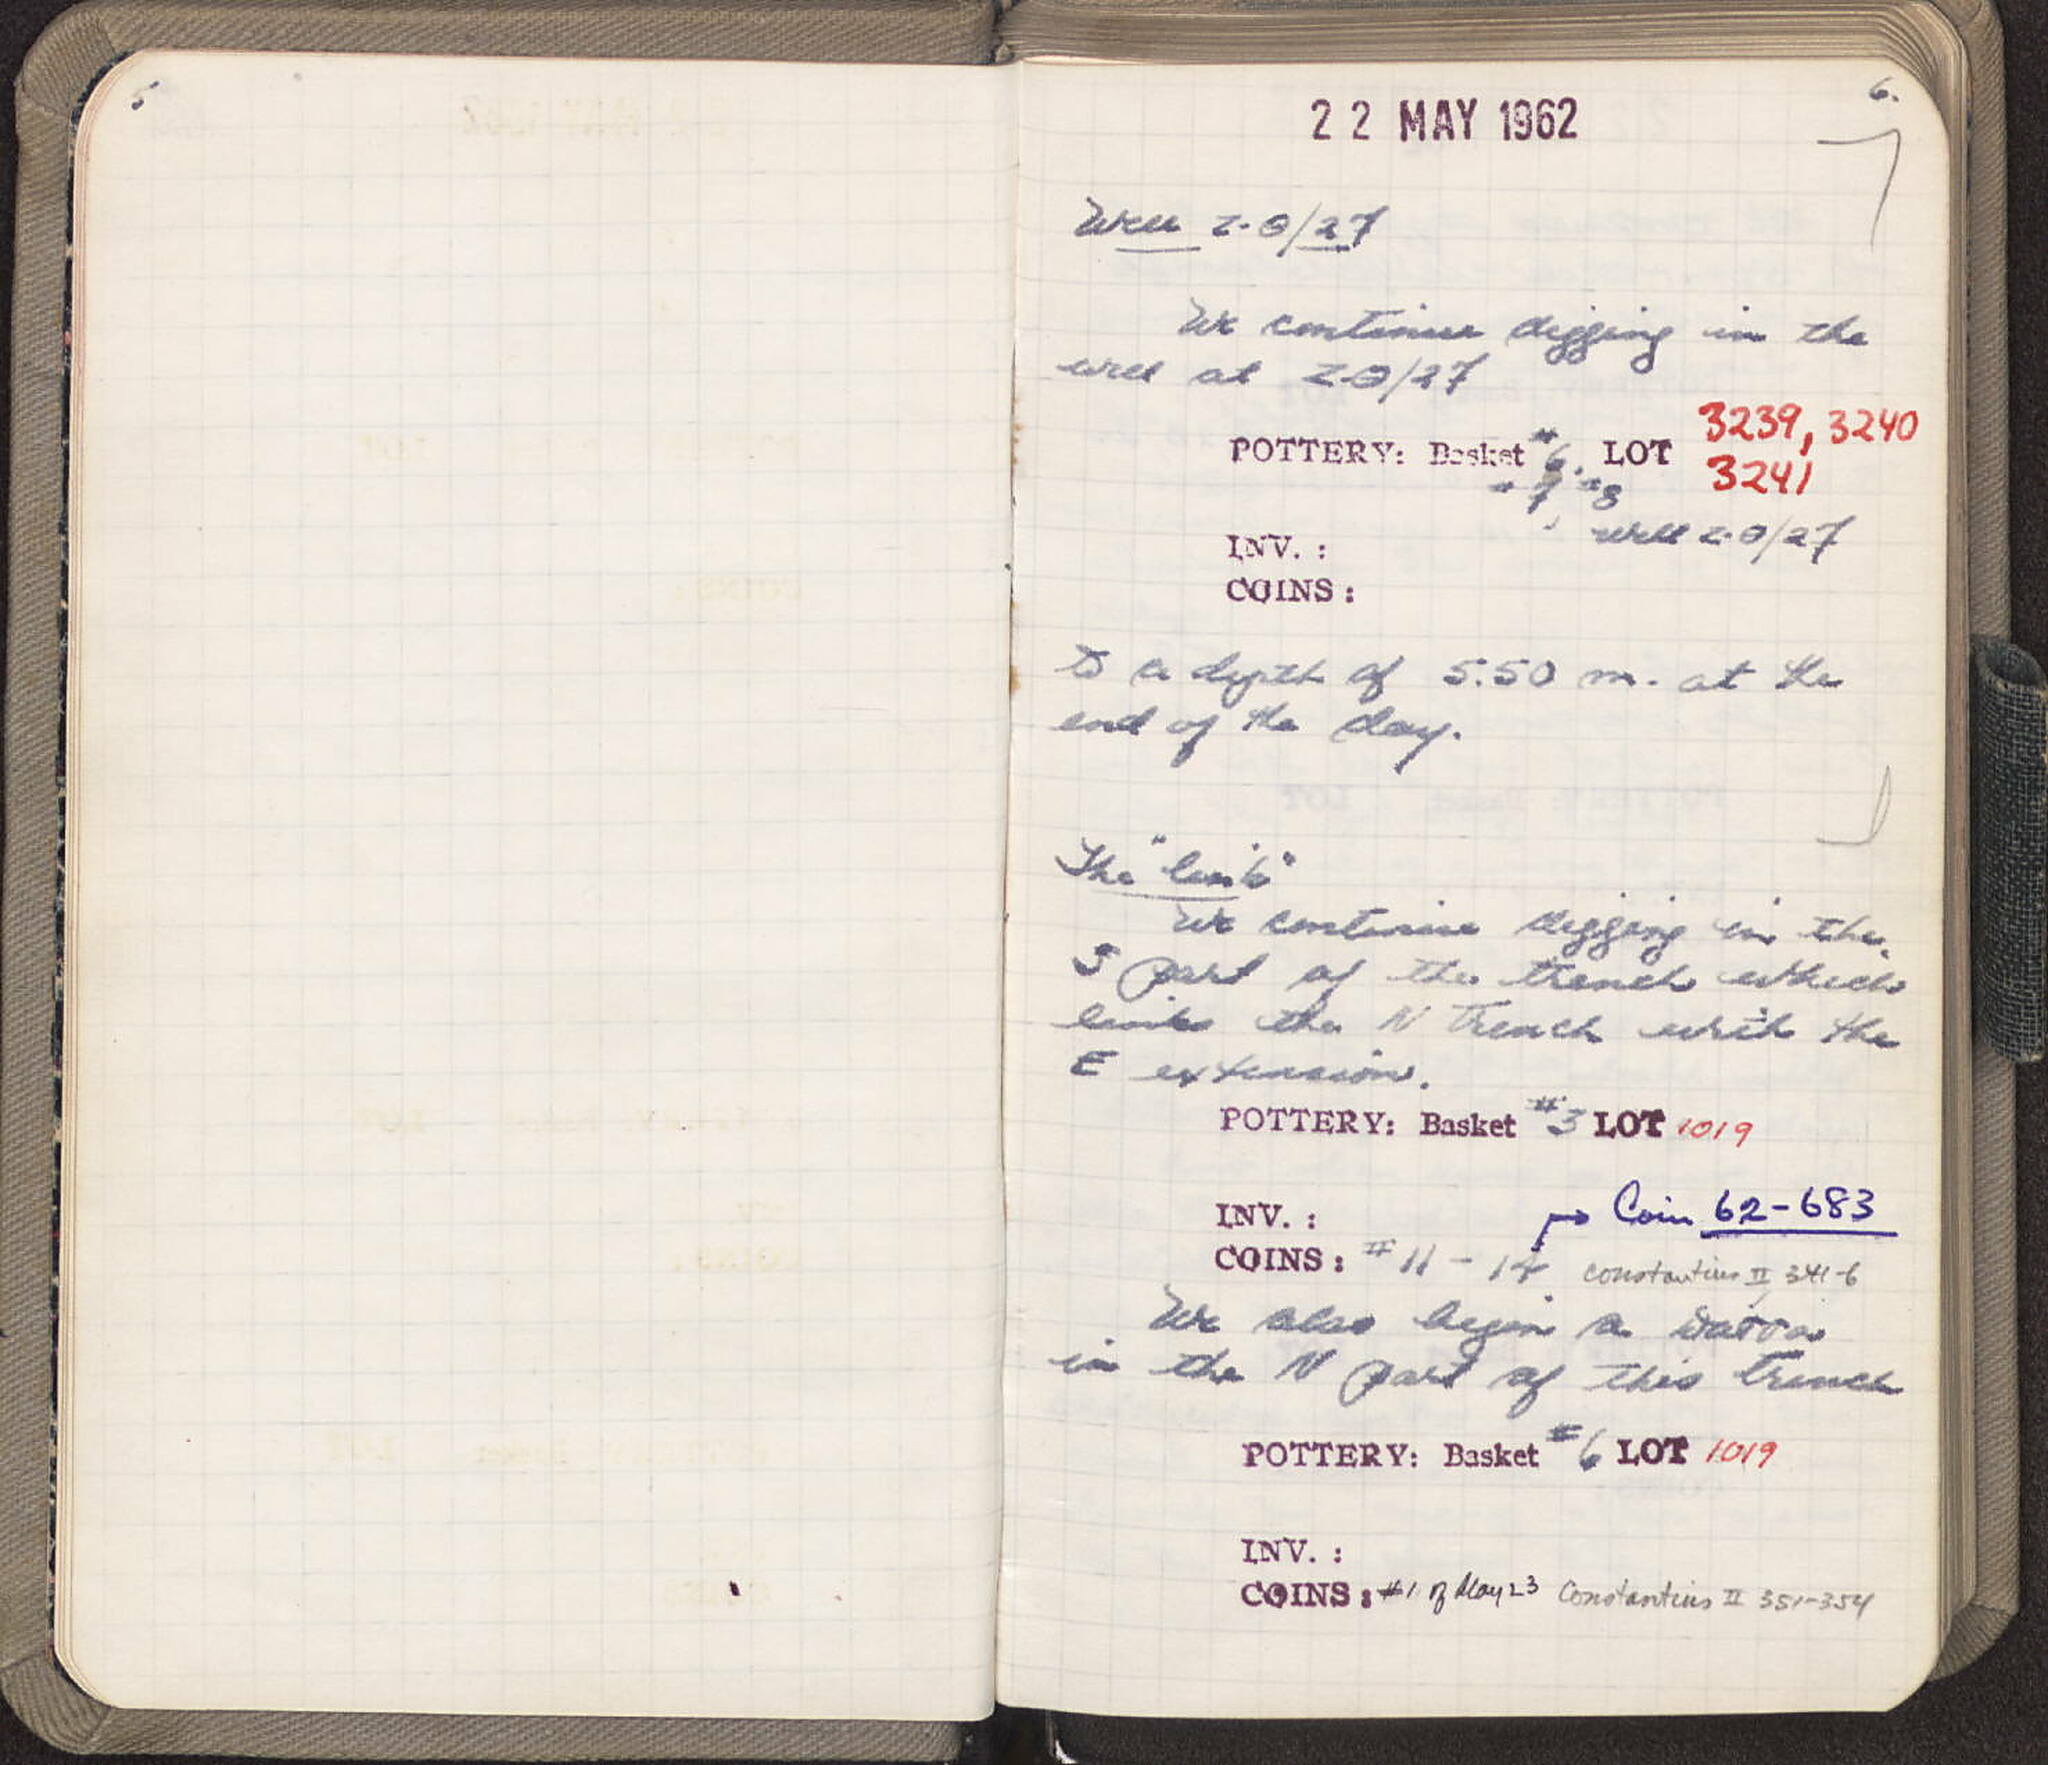 5
6.
22 MAY 1962
Well Z-Θ/27
We continue digging in the
well at Z-Θ/27
POTTERY: Basket #6. LOT 3239, 3240
#7 #8 3241
Well Z-Θ/27
INV. :
COINS :
to a depth of 5.50 m. at the
end of the day.
The "link"
We continue digging in the
S part of the trench which
links the N Trench with the
E extension.
POTTERY: Basket #3 LOT 1019
INV. : → Coin 62-683
COINS : #11 - 14 Constantius II, 341-6
We also begin a
in the N part of this trench
POTTERY: Basket #6 LOT 1019
INV. :
COINS : #1 of May 23 Constantius II 351-354